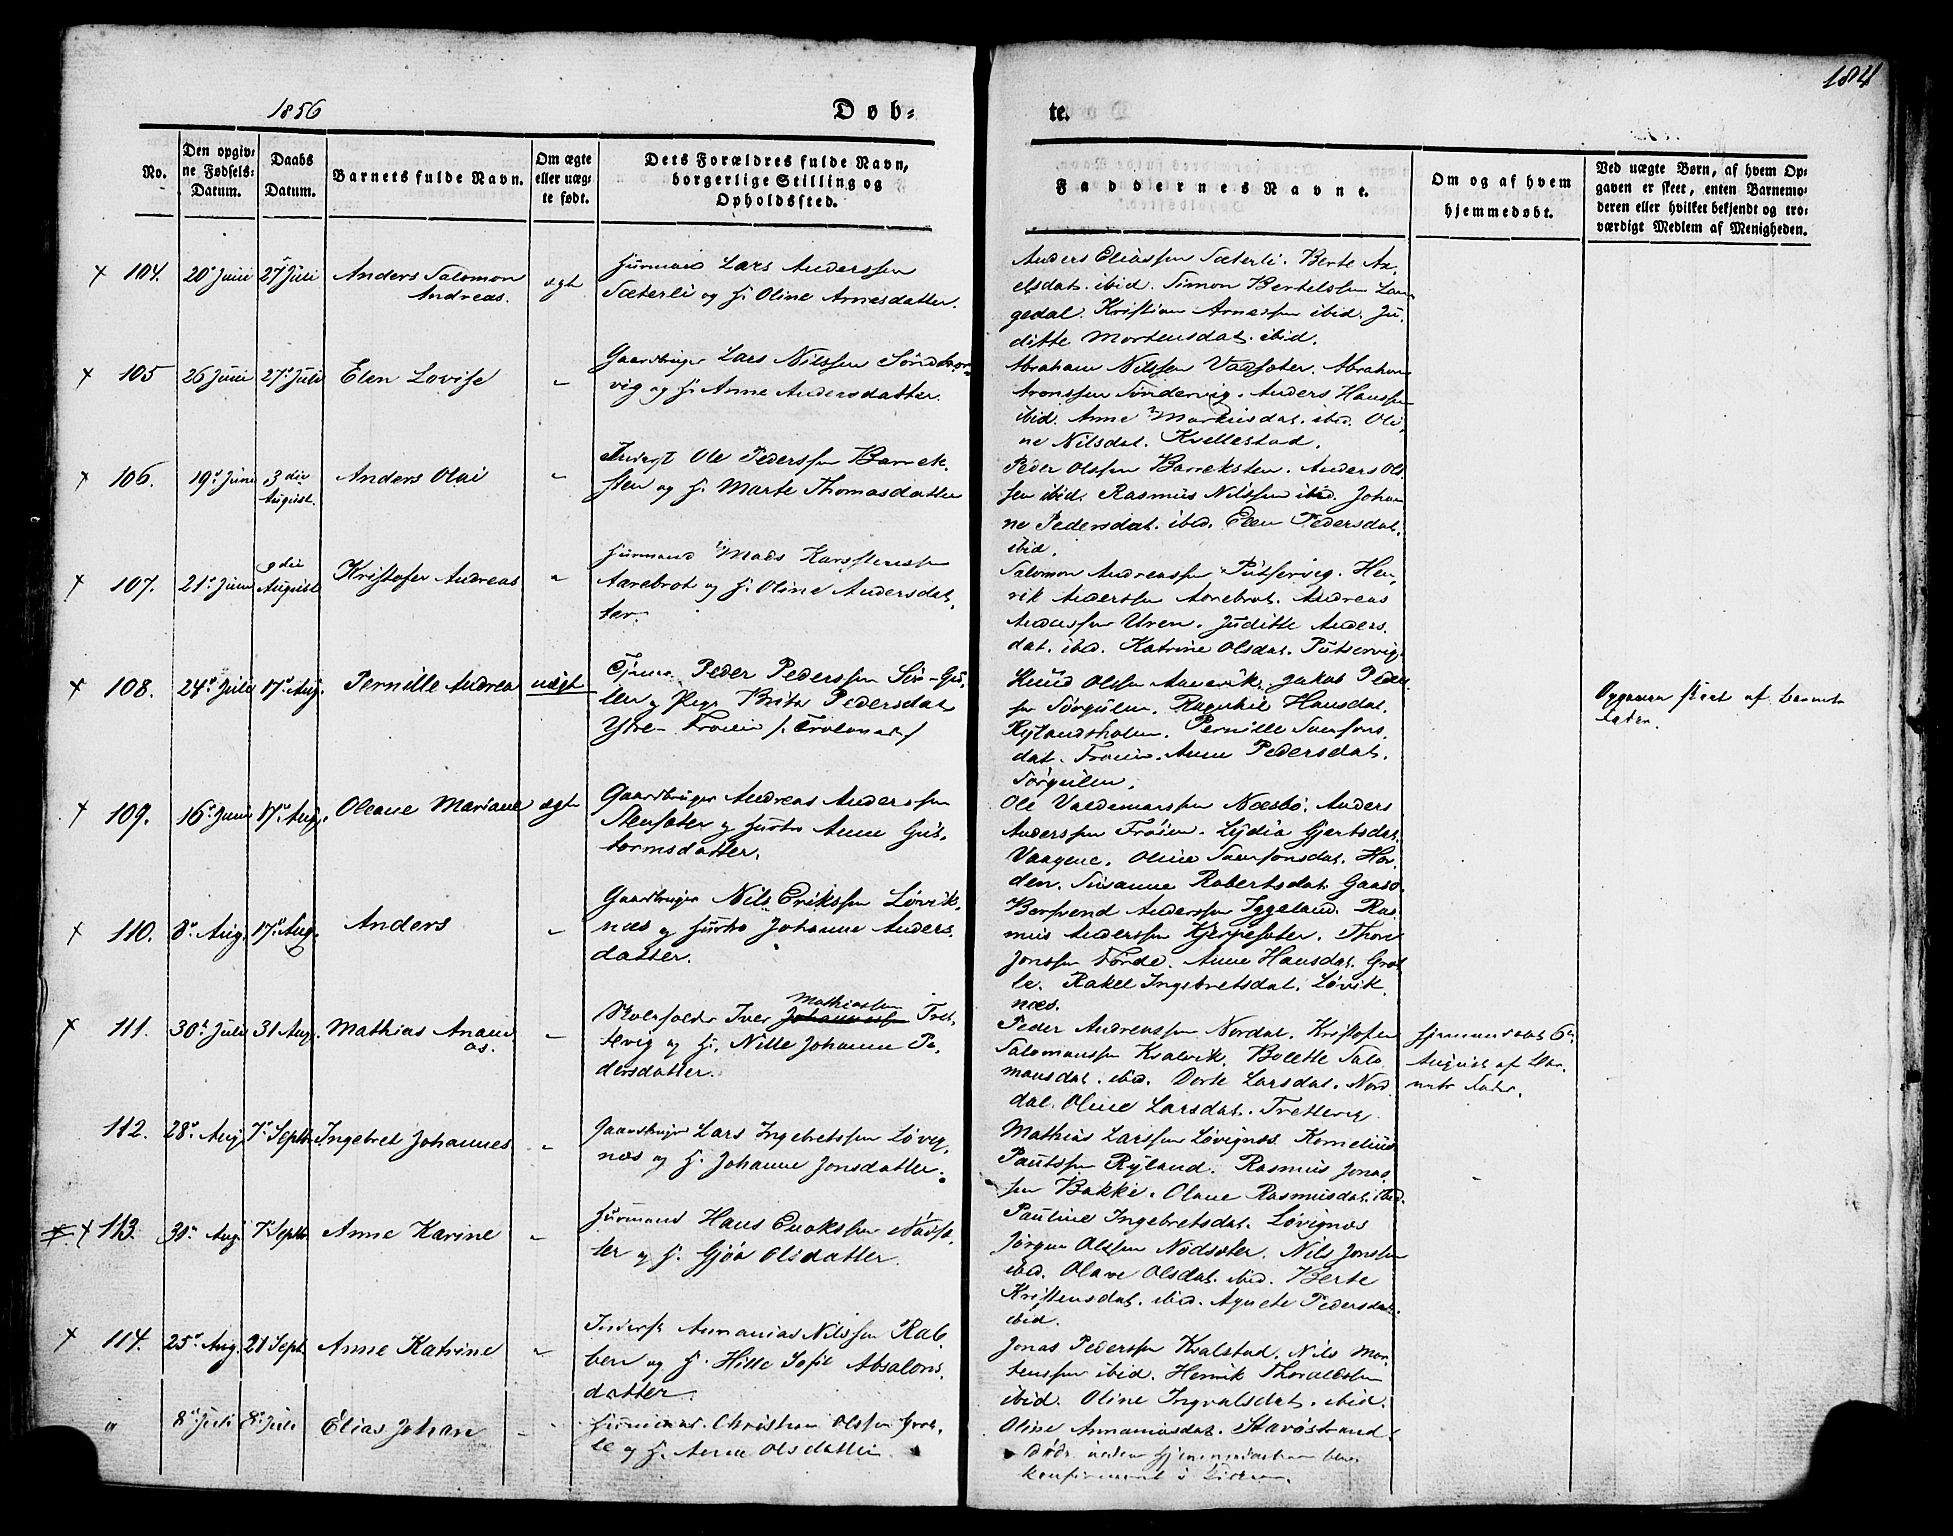 1856
Døb-
te.
184
No.
Den opgiv-
ne Fødsels-
Datum.
Daabs
Datum.
Barnets fulde Navn.
Om ægte
eller uæg-
te født.
Dets Forældres fulde Navn,
borgerlige Stilling og
Opholdssted.
Faddernes Navne.
Om og af hvem
hjemmedøbt.
Ved uægte Børn, af hvem Op-
gaven er skeet, enten Barnemo-
deren eller hvilket bekjendt og tro-
værdigt Medlem af Menigheden.
104. 20de Juni 27 Juli Anders Salomon
Andreas.
ægt
Huusmand Lars Anderssen
Sæterli og H. Oline Arnesdatter.
Anders Eliassen Sæterli. Berte Ax-
elsdat. ibid. Simon Bertelssen Lan-
gedal. Kristian Arnessen ibid. Ju-
ditte Mortensdat. ibid.
105 26 Juni 27de Juli Elen Lovise "
Gaardbruger Lars Nilssen Søndbor-
vig og H. Anne Andersdatter.
Abraham Nilssen Vadsæter. Abraham
Aronssen Søndervig. Anders Hanssen
ibid. Anne Markusdat. ibid. Oli-
ne Nilsdat. Kvellestad.
106. 19de Juni 3die
August.
Anders Olai "
Inderst Ole Pederssen Barrek-
sten og H. Marte Thomasdatter
Peder Olssen Barreksten. Anders Ols-
sen ibid. Rasmus Nilssen ibid. Johan-
ne Pedersdat. ibid. Elen Pedersdat.
ibid.
107. 21de Juni August Kristofer Andreas "
Huusmand Mads Karstenssen
Aarebrot og H. Oline Andersdat-
ter.
Salomon Andreassen Pütservig. Hen-
rik Anderssen Aarebrot. Andreas
Uren. Juditte Anders-
dat. ibid. Katrine Olsdat. Pütservig.
108. 24de Juli 17de Aug. Pernille Andrea uægt
Peder Pederssen
og Pige Brita Pedersdat.
Ytre-
Knud Olssen Jakob Peder-
sen Sörgulen. Ragnhil Hansdat.
Rylandsholm. Pernille Samsons-
dat. Frøien. Anne Pedersdat.
Sørgulen.
Opgaven skeet af Barnets
Fader.
109. 16de Juni 17de Aug. Oleane Mariane ægte
Gaardbruger Andreas Anderssen
Stensæter og Hustro Anne Gut-
tormsdatter.
Ole Valdemarssen Næsbø. Anders
Anderssen Frøien. Lydia Gjertsdat.
Vaagene. Oline Samsonsdat. Hor-
den. Susanne Robertsdat. Gaasø.
110. 8de Aug. 17de Aug. Anders "
Gaardbruger Nils Erikssen Løvik-
næs og Hustro Johanne Anders-
datter.
Bersvend Anderssen Iggeland. Ras-
mus Anderssen Kjerpesæter. Thore
Jonssen Førde. Anne Hansdat. Grot-
le. Rakel Ingebretsdat. Løvik-
næs.
111. 30te Juli 31 Aug. Mathias Anani-
as. "
Skoleholder Iver Mathiassen Tret-
tevig og H. Nille Johanne Pe-
dersdatter.
Peder Andreassen Nordal. Kristofer
Salomonssen Kvalvik. Bolette Salo-
monsdat. ibid. Dorte Larsdat. Nord-
dal. Oline Larsdat. Trettevig.
Hjemmedøbt 6te
August af Bar-
nets Fader.
112. 28de Aug. 7de Septb. Ingebret Johannes "
Gaardbruger Lars Ingebretssen Løvig-
næs og H. Johanne Jonsdatter.
Mathias Larssen Løvignæs. Kornelius
Paulssen Ryland. Rasmus Jonas-
sen Bakke. Olane Rasmusdat. ibid.
Pauline Ingebretsdat. Løvignæs
113. 30te Aug. 7de Septb. Anne Karine "
Huusmand Hans Enokssen Nødsæ-
ter og H. Gjøa Olsdatter.
Jørgen Olssen Nødsæter. Nils Jonssen
ibid. Olave Olsdat. ibid. Berte
Kristensdat. ibid. Agnete Pedersdat.
ibid.
114. 25de Aug. 21 Sept. Anne Katrine "
Inderst Annanias Nilssen Rab-
ben og H. Hille Sofie Absalons-
datter.
Jonas Pederssen Kvalstad. Nils Mor-
tenssen ibid. Henrik Thoralessen
ibid. Oline Ingvalsdat. ibid.
Oline Annaniasdat. Stavøstrand.
" 8de Juli 8de Juli Elias Johan "
Huusmand Christian Olssen Grot-
le og H. Anne Olsdatter.
Døde uden Hjemmedaaben blev
konfirmeret i Kirken.